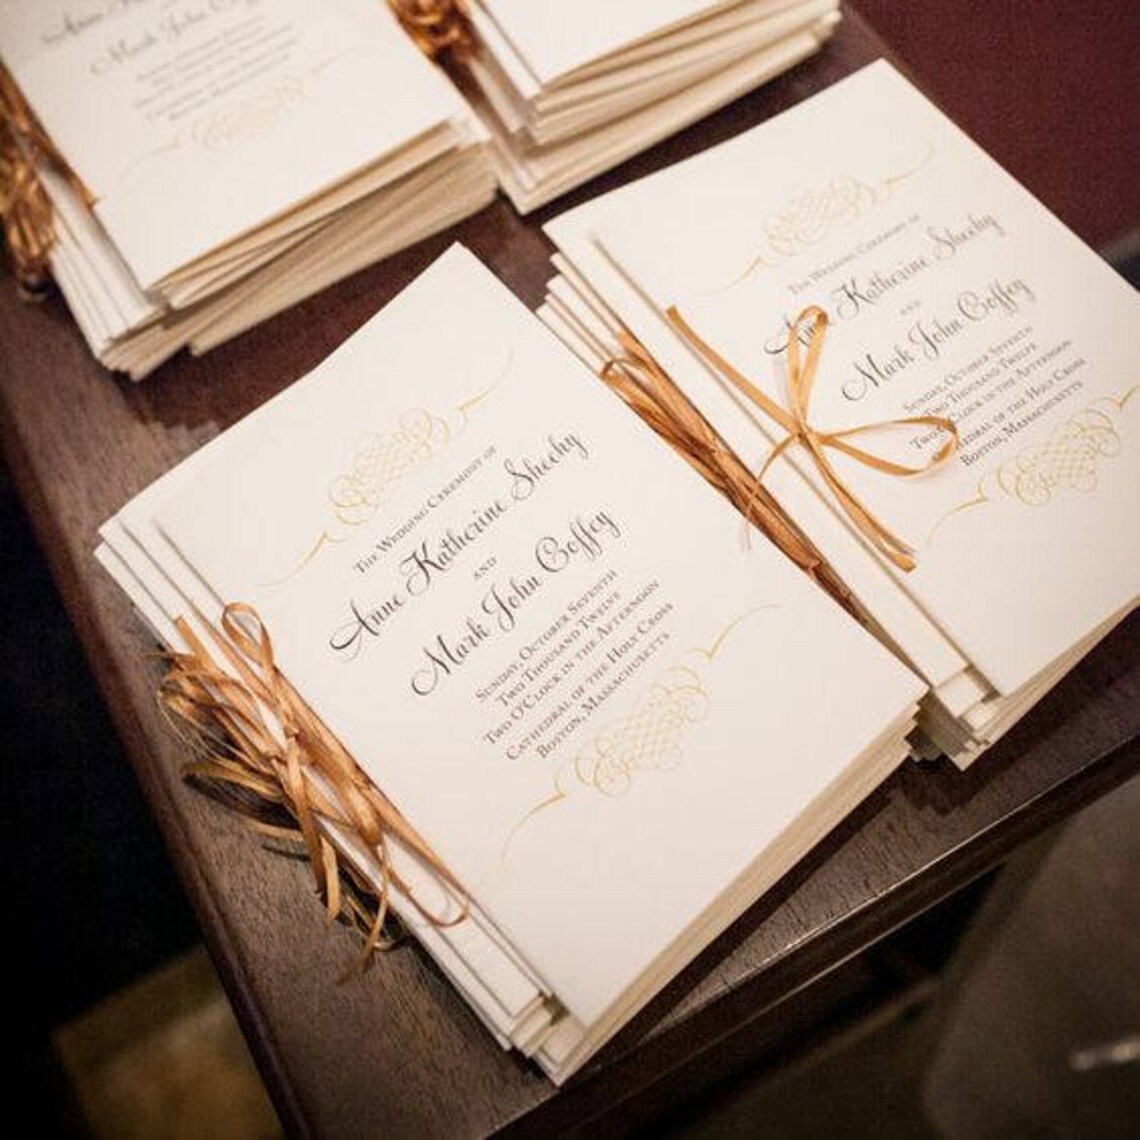 Anne
Mark John Co
The Wedding Ceremony of
Anne Katherine Sheehy
and
Mark John Coffey
Sunday, October Seventh
Two Thousand Twelve
Two O'Clock in the Afternoon
Cathedral of the Holy Cross
Boston, Massachusetts
The Wedding Ceremony of
Anne Katherine Sheehy
and
Mark John Coffey
Sunday, October Seventh
Two Thousand Twelve
Two O'Clock in the Afternoon
Cathedral of the Holy Cross
Boston, Massachusetts